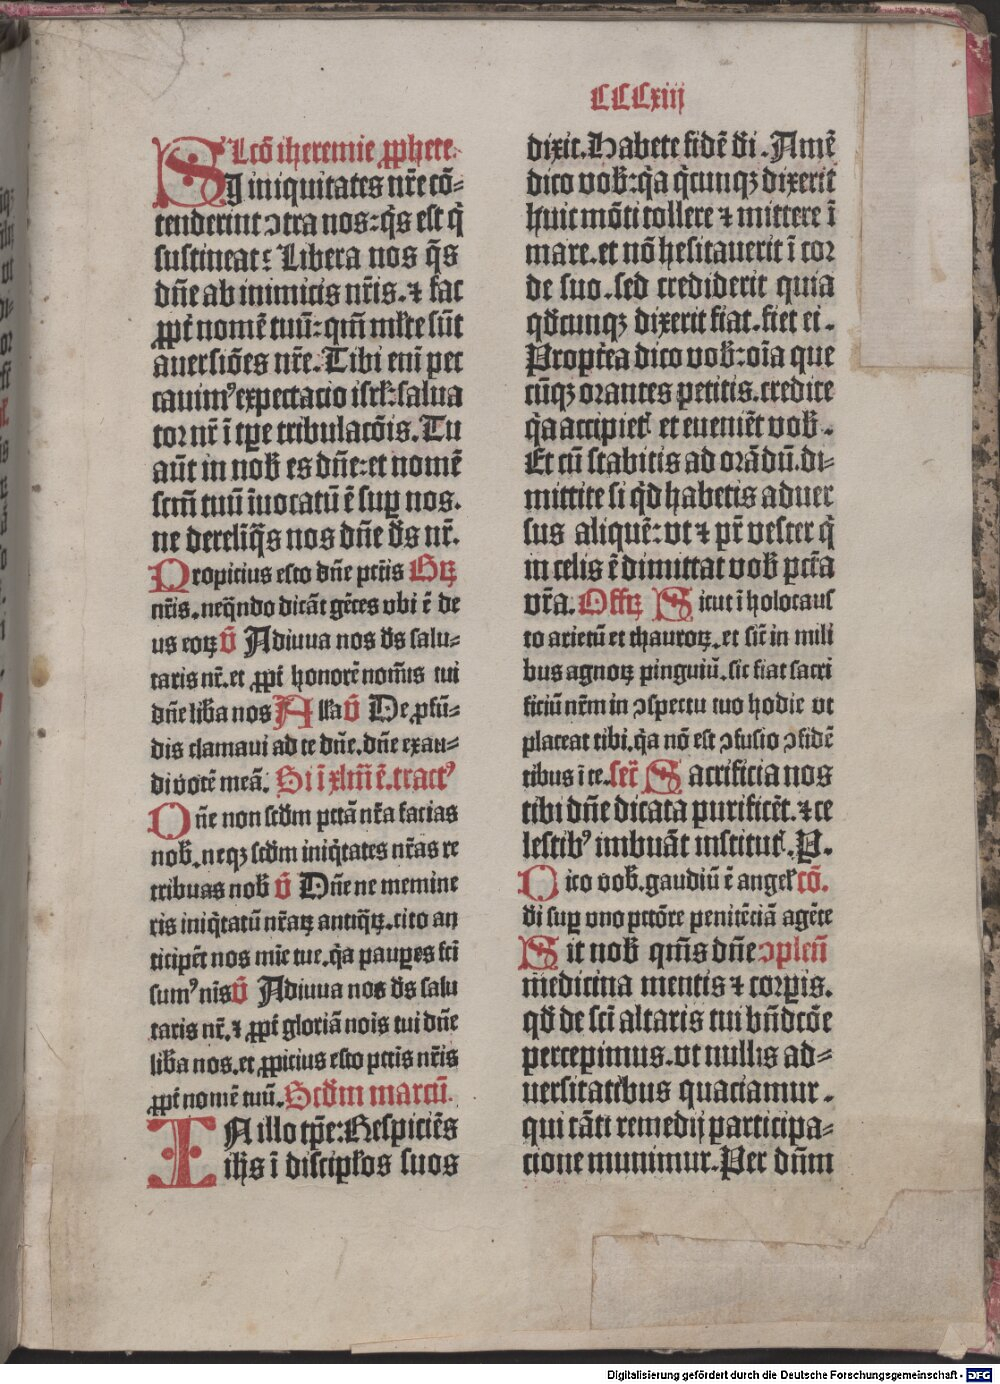 CCCxiij
Lcõ iheremie ꝓphete.
SI iniquitates nr̃e cõ⸗
tenderint ↄtra nos: q̃s est q̃
sustineat: Libera nos q̃s
dñe ab inimicis nr̃is. ⁊ fac
ꝓpt̃ nomẽ tuũ: qm̃ ml̃te sũt
auersiões nr̃e. Tibi eni pec
cauimꝰ expectacio isrl̃: salua
tor nr̃ ĩ tp̃e tribulacõis. Tu
aũt in nob̃ es dñe: et nomẽ
scm̃ tuũ ĩuocatũ ẽ suꝑ nos.
ne derelĩq̃s nos dñe d̃s nr̃.
Propicius esto dñe pctĩs Grꝫ
nr̃is. neq̃ndo dicãt gẽtes vbi ẽ de
us eoꝝ V̉ Adiuua nos d̃s salu⸗
taris nr̃. et ꝓpt̃ honorẽ nom̃is tui
dñe lib̃a nos Alla V̉ De ꝓfũ⸗
dis clamaui ad te dñe. dñe exau⸗
di vocẽ meã. Si ĩ xlm̃ ẽ. tractꝰ
Dñe non scd̃m pctã nr̃a facias
nob̃. neqꝫ scd̃m iniq̃tates nr̃as re
tribuas nob̃ V̉ Dñe ne memine
ris iniq̃tatũ nr̃aꝝ antiq̃ꝝ. cito an
ticipẽt nos mĩe tue. q̃a pauꝑes fci
sumꝰ nĩs V̉ Adiuua nos d̃s salu
taris nr̃. ⁊ ꝓpt̃ gloriã nois tui dñe
lib̃a nos. et ꝓpicius esto pctĩs nr̃is
ꝓpt̃ nomẽ tuũ. Scd̃m marcũ.
IN illo tꝑe: Respiciẽs
ihs̃ ĩ discipl̃os suos
dixit. Habete fidẽ d̃i. Amẽ
dico vob̃: q̃a q̃cunqꝫ dixerit
huic mõti tollere ⁊ mittere ĩ
mare. et nõ hesitauerit ĩ cor
de suo. sed crediderit quia
qd̃cunqꝫ dixerit fiat. fiet ei.
Propt̃ea dico vob̃: oĩa que
cũqꝫ orantes petitis. credite
q̃a accipiet̃ et eueniẽt vob̃.
Et cũ stabitis ad orãdũ. di⸗
mittite si qd̃ habetis aduer
sus aliquẽ: vt ⁊ pr̃ vester q̃
in celis ẽ dimittat vob̃ pctã
vr̃a. Offꝝ Sicut ĩ holocaus
to arietũ et thauroꝝ. et sic̃ in mili
bus agnoꝝ pinguiũ. sic fiat sacri
ficiũ nr̃m in ↄspectu tuo hodie vt
placeat tibi. q̃a nõ est ↄfusio ↄfidẽ
tibus ĩ te. Secr̃ Sacrificia nos
tibi dñe dicata purificẽt. ⁊ ce
lestibꝰ imbuãt institut̃. P.
Dico vob̃. gaudiũ ẽ angel̃ cõ.
d̃i suꝑ vno pctõre penitẽciã agẽte
Sit nob̃ qm̃s dñe ↄplen̄
medicina mentis ⁊ corꝑis.
qd̃ de sci altaris tui bñdcõe
percepimus. vt nullis ad⸗
uersitatibus quaciamur.
qui tãti remedij participa⸗
cione munimur. Per dñm
Digitalisierung gefördert durch die Deutsche Forschungsgemeinschaft - DFG